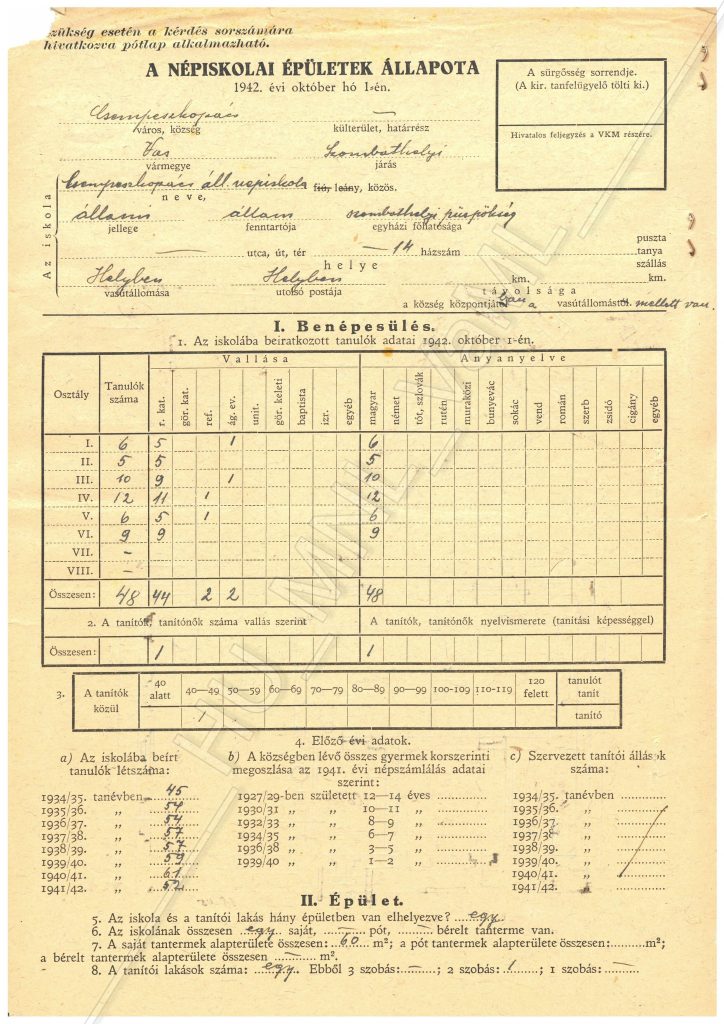 szükség esetén a kérdés sorszámára
hivatkozva pótlap alkalmazható.
A NÉPISKOLAI ÉPÜLETEK ÁLLAPOTA
1942. évi október hó 1-én.
A sürgősség sorrendje.
(A kir. tanfelügyelő tölti ki.)
Hivatalos feljegyzés a VKM részére.
Csempeszkopács —
város, község külterület, határrész
Vas Szombathelyi
vármegye járás
Az iskola
Csempeszkopács áll. népiskola fiú, leány, közös.
neve,
állami állam szombathelyi püspökség
jellege fenntartója egyházi főhatósága
— utca, út, tér — 14 házszám
puszta
tanya
szállás
helye
Helyben Helyben km. km.
vasútállomása utolsó postája távolsága
a község központjától van a vasútállomástól mellett van.
I. Benépesülés.
1. Az iskolába beiratkozott tanulók adatai 1942. október 1-én.
Osztály Tanulók száma Vallása Anyanyelve
r. kat. gör. kat. ref. ág. ev. unit. gör. keleti baptista izr. egyéb magyar német tót, szlovák rutén muraközi bunyevác sokác vend román szerb zsidó cigány egyéb
I. 6 5 1 6
II. 5 5 5
III. 10 9 1 10
IV. 12 11 1 12
V. 6 5 1 6
VI. 9 9 9
VII. –
VIII. –
Összesen: 48 44 2 2 48
2. A tanítók, tanítónők száma vallás szerint A tanítók, tanítónők nyelvismerete (tanítási képességgel)
Összesen: 1 1
3. A tanítók közül 40 alatt 40—49 50—59 60—69 70—79 80—89 90—99 100-109 110-119 120 felett tanulót tanít
1 tanító
4. Előző évi adatok.
a) Az iskolába beírt tanulók létszáma:
1934/35. tanévben 45
1935/36. „ 54
1936/37. „ 54
1937/38. „ 57
1938/39. „ 57
1939/40. „ 59
1940/41. „ 61
1941/42. „ 52
b) A községben lévő összes gyermek korszerinti
megoszlása az 1941. évi népszámlálás adatai
szerint:
1927/29-ben született 12—14 éves
1930/31 „ „ 10—11 „
1932/33 „ „ 8—9 „
1934/35 „ „ 6—7 „
1936/38 „ „ 3—5 „
1939/40 „ „ 1—2 „
c) Szervezett tanítói állások
száma:
1934/35. tanévben
1935/36. „
1936/37. „
1937/38. „
1938/39. „
1939/40. „
1940/41. „
1941/42. „
II. Épület.
5. Az iskola és a tanítói lakás hány épületben van elhelyezve? egy
6. Az iskolának összesen egy saját, — pót, — bérelt tanterme van.
7. A saját tantermek alapterülete összesen: 60 m²; a pót tantermek alapterülete összesen: m²;
a bérelt tantermek alapterülete összesen — m².
8. A tanítói lakások száma: egy. Ebből 3 szobás: —; 2 szobás: 1; 1 szobás: —
HU_MNL_VaML